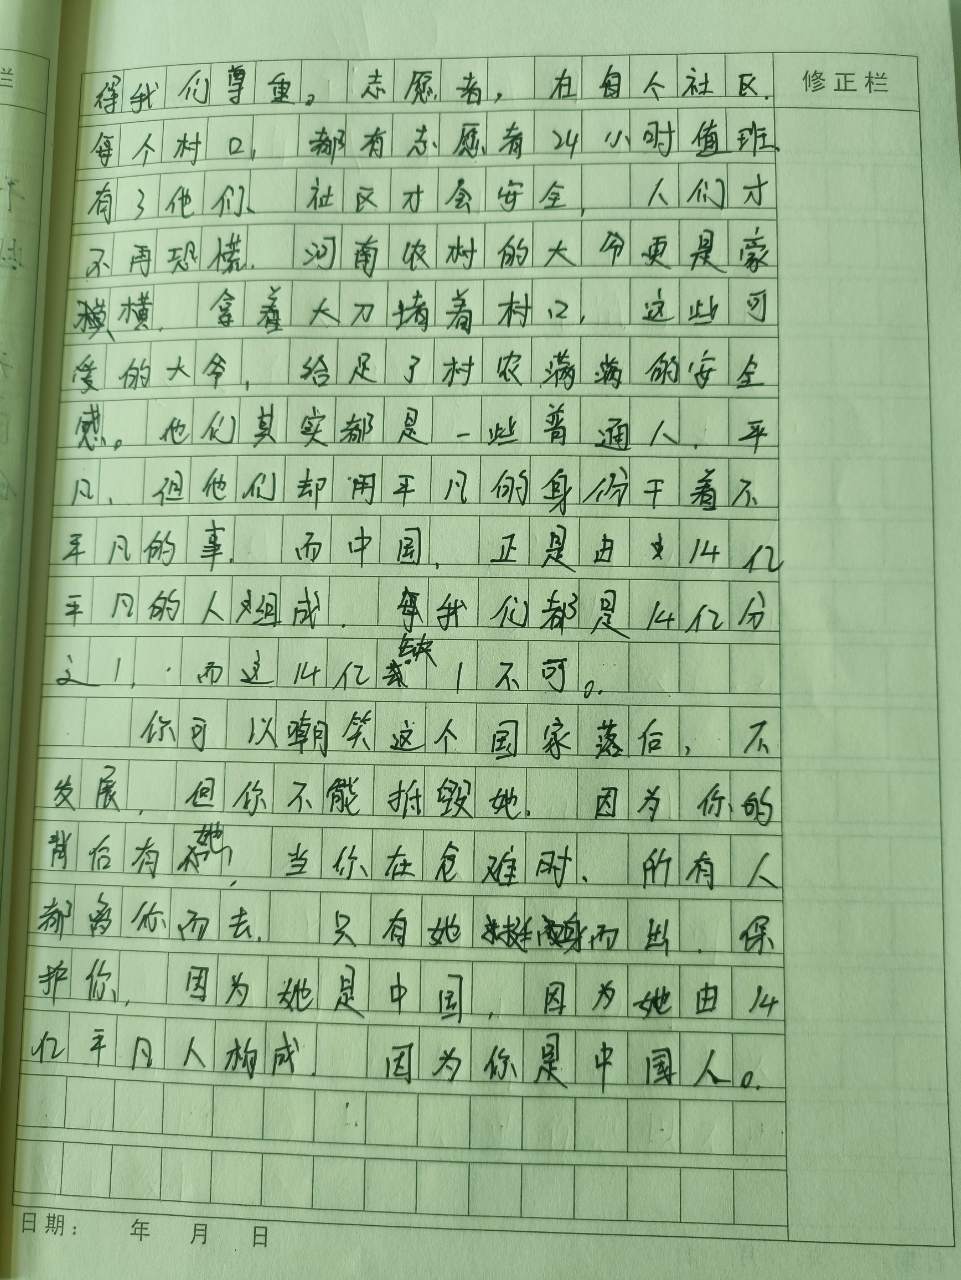 得我们尊重。志愿者，在每个社区.
每个村口，都有志愿者24小时值班、
有了他们、社区才会安全，人们才
不再恐慌.河南农村的大爷更是豪
横，拿着大刀堵着村口，这些可
爱的大爷，给足了村农满满的安全
感。他们其实都是一些普通人.平
凡、但他们却用平凡的身份干着不
平凡的事.而中国，正是由14亿
平凡的人组成.我们都是14亿分
之1，而这14亿缺1不可。
你可以嘲笑这个国家落后，不
发展，但你不能拆毁她.因为你的
背后有她，当你在危难时、所有人
都离你而去.只有她挺身而出.保
护你，因为她是中国，因为她由14
亿平凡人构成.因为你是中国人。
修正栏
栏
日期： 年 月 日